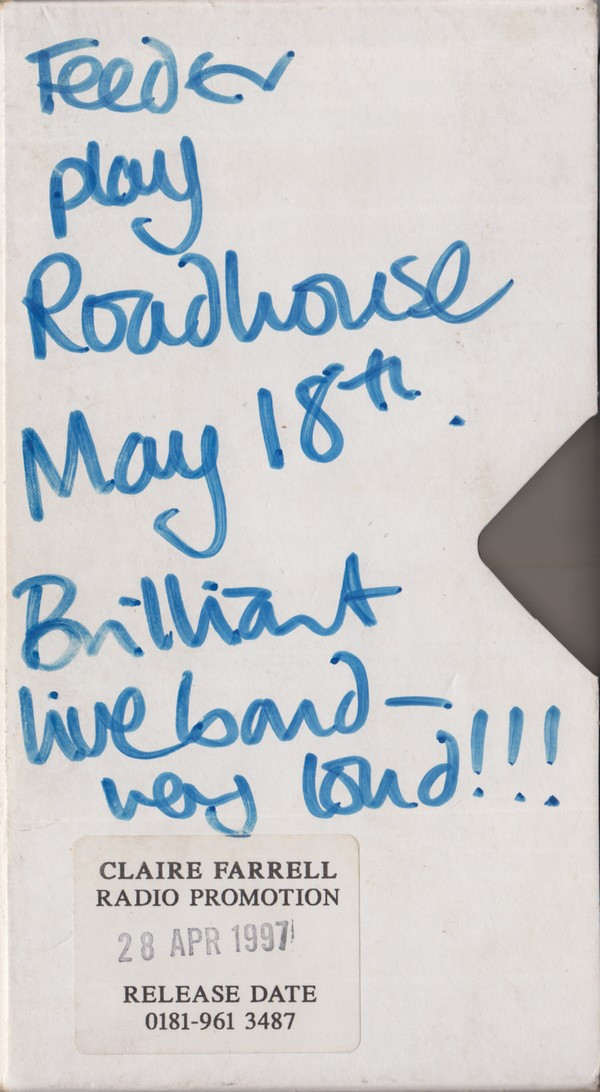 Feeder
play
Roadhouse
May 18th.
Brilliant
live band –
very loud!!!
CLAIRE FARRELL
RADIO PROMOTION
28 APR 1997
RELEASE DATE
0181-961 3487